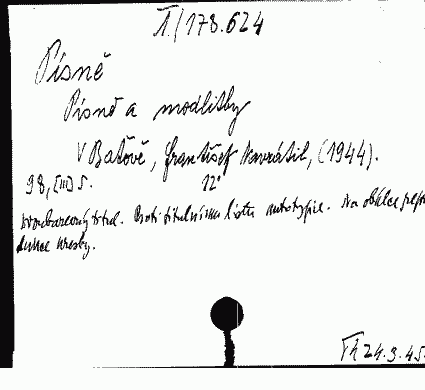 T/178.624
Písně
Písně a modlitby
V Baťově, František Navrátil, (1944).
98, [III] s. 12°
Dvoubarevný titul. Proti titulnímu listu autotypie. Na obálce repro
dukce kresby.
24.3.45.